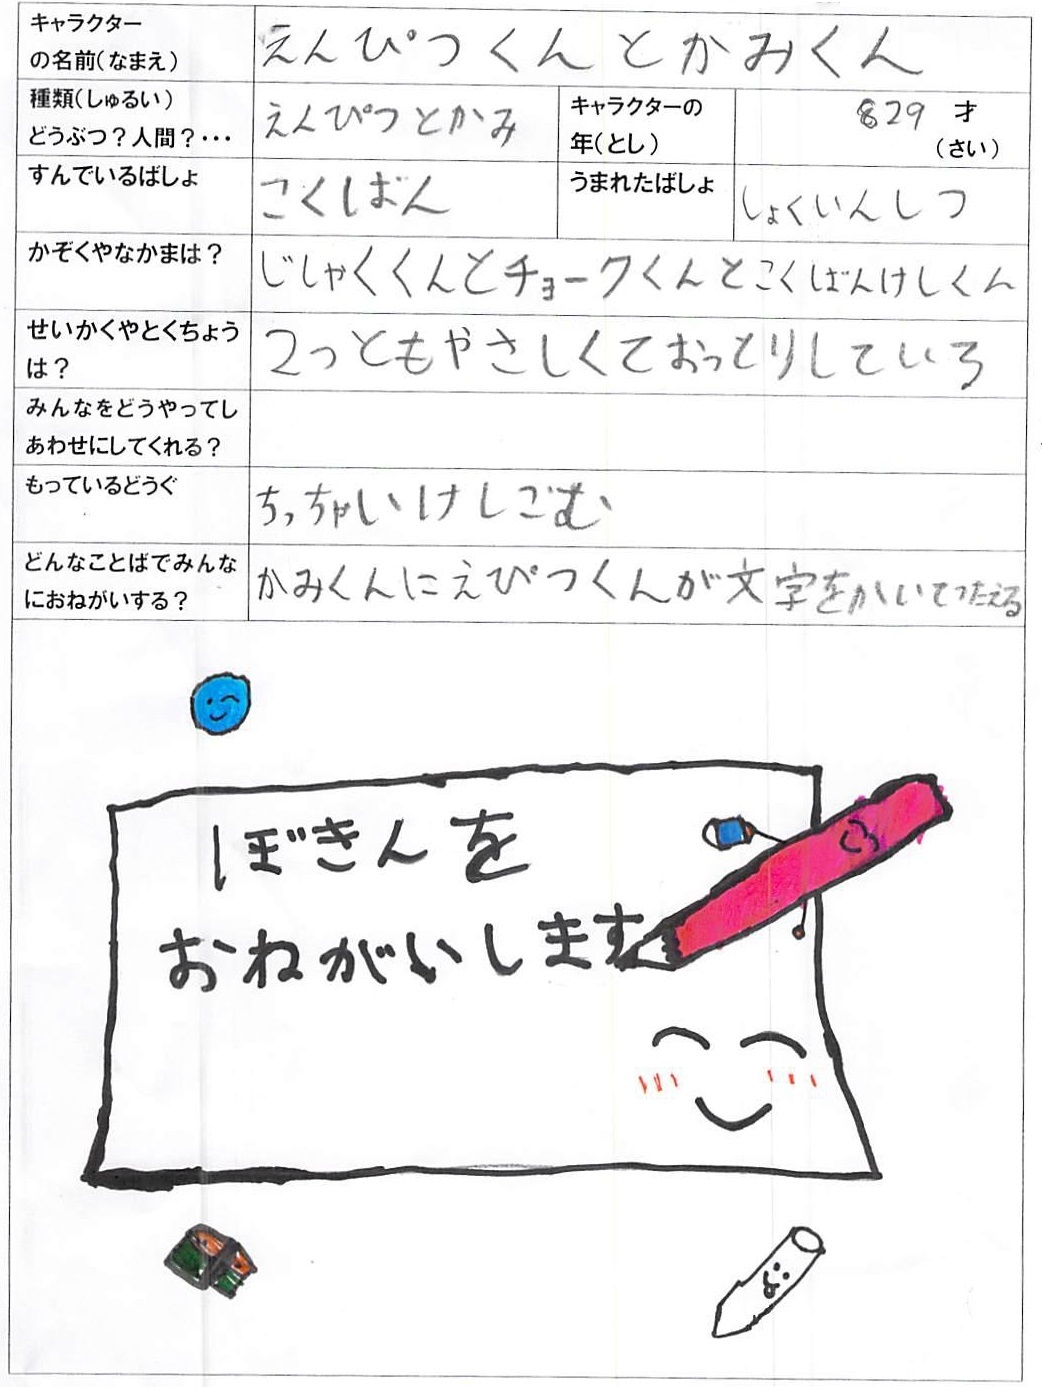 キャラクター
の名前(なまえ)
えんぴつくんとかみくん
種類(しゅるい)
どうぶつ?人間?・・・
えんぴつとかみ
キャラクターの
年(とし)
829 才
(さい)
すんでいるばしょ
こくばん
うまれたばしょ
しょくいんしつ
かぞくやなかまは?
じしゃくくんとチョークくんとこくばんけしくん
せいかくやとくちょう
は?
2っともやさしくておっとりしている
みんなをどうやってし
あわせにしてくれる?
もっているどうぐ
ちっちゃいけしごむ
どんなことばでみんな
におねがいする?
かみくんにえぴつくんが文字をかいてつたえる
ぼきんを
おねがいします